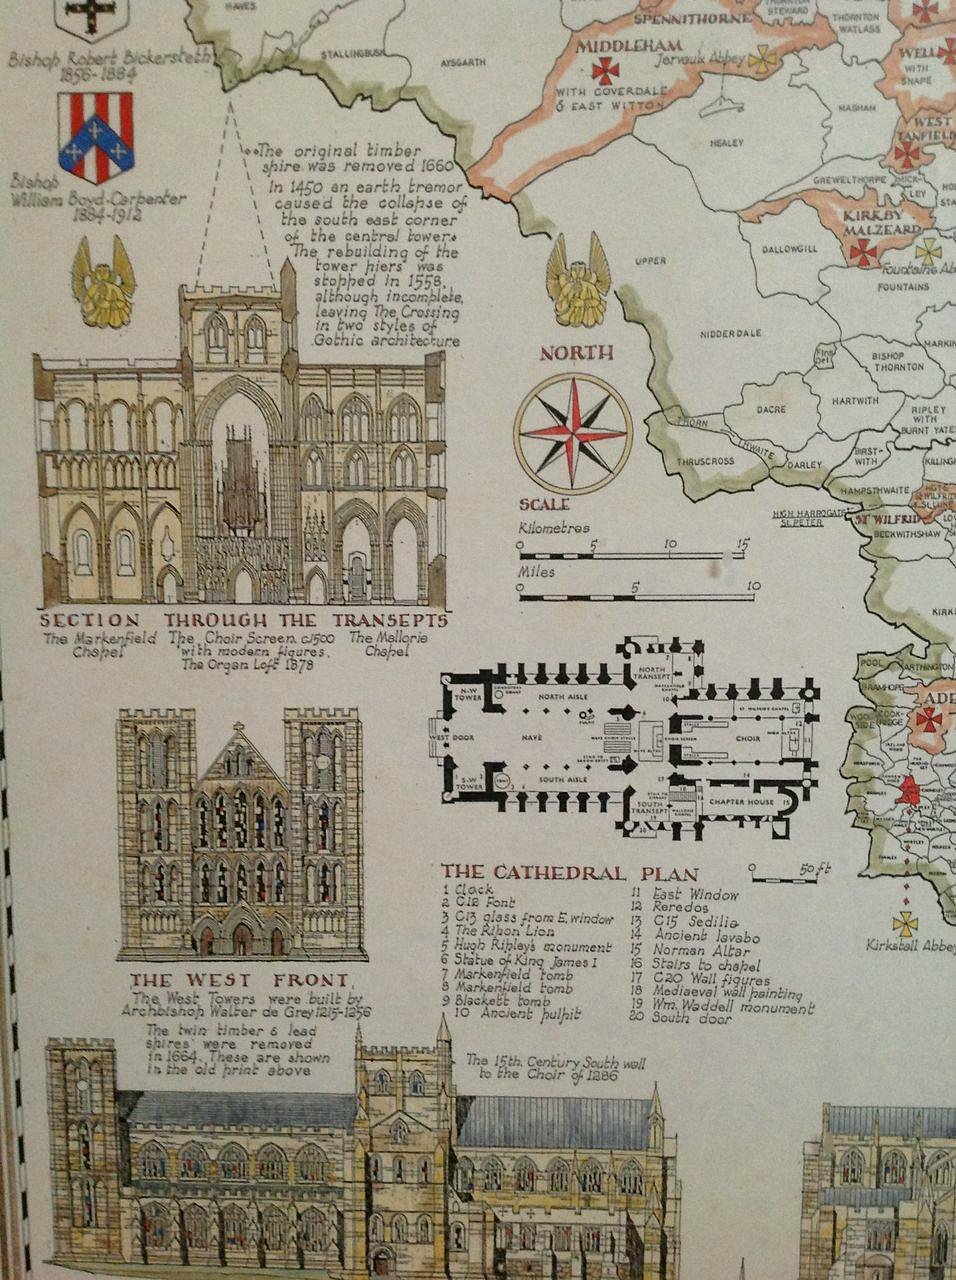 Bishop Robert Bickersteth
1856-1884
Bishop
William Boyd-Carpenter
1884-1912
The original timber
spire was removed 1660
In 1450 an earth tremor
caused the collapse of
the south east corner
of the central tower.
The rebuilding of the
tower piers was
stopped in 1558,
although incomplete,
leaving The Crossing
in two styles of
Gothic architecture
SECTION THROUGH THE TRANSEPTS
The Markenfield
Chapel
The Choir Screen c.1500
with modern figures.
The Organ Loft 1878
The Mallorie
Chapel
THE WEST FRONT.
The West Towers were built by
Archbishop Walter de Grey 1215-1256
The twin timber & lead
spires were removed
in 1664. These are shown
in the old print above
The 15th. Century South wall
to the Choir of 1286
HAWES
STALLINGBUSK
AYSGARTH
SPENNITHORNE
THORNTON
STEWARD
THORNTON
WATLASS
MIDDLEHAM
Jervaulx Abbey
WITH COVERDALE
& EAST WITTON
WELL
WITH
SNAPE
MASHAM
HEALEY
WEST
TANFIELD
GREWELTHORPE
MICK-
LEY
KIRKBY
MALZEARD
DALLOWGILL
Fountains Ab
FOUNTAINS
UPPER
NIDDERDALE
BISHOP
THORNTON
MARKIN
DACRE
HARTWITH
RIPLEY
WITH
BURNT YATE
THORN
THWAITE
THRUSCROSS
DARLEY
BIRST-
WITH
KILLING
HAMPSTHWAITE
HIGH HARROGATE
St. PETER
ST WILFRID
BECKWITHSHAW
KIRK
POOL
ARTHINGTON
BRAMHOPE
ADE
Kirkstall Abbey
NORTH
SCALE
Kilometres
0 5 10 15
Miles
0 5 10
N.W
TOWER
NORTH AISLE
NORTH
TRANSEPT
WEST DOOR
NAVE
CHOIR SCREEN
CHOIR
HIGH ALTAR
S.W
TOWER
SOUTH AISLE
SOUTH
TRANSEPT
CHAPTER HOUSE
THE CATHEDRAL PLAN
0 50 ft
1 Clock
2 C12 Font
3 C13 glass from E. window
4 The Ripon Lion
5 Hugh Ripley's monument
6 Statue of King James I
7 Markenfield tomb
8 Markenfield tomb
9 Blackett tomb
10 Ancient pulpit
11 East Window
12 Reredos
13 C15 Sedilia
14 Ancient lavabo
15 Norman Altar
16 Stairs to chapel
17 C20 Wall figures
18 Mediaeval wall painting
19 Wm. Waddell monument
20 South door